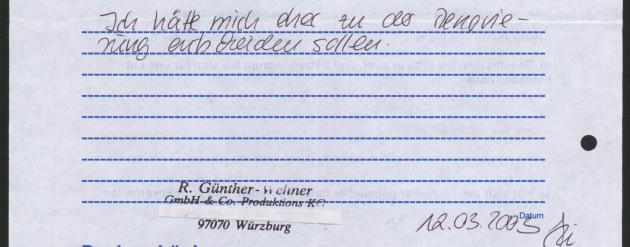 Ich hätte mich eher zu der Renovie-
rung entscheiden sollen.
R. Günther-
GmbH & Co. Produktions KG
97070 Würzburg
Datum
12.03.2003